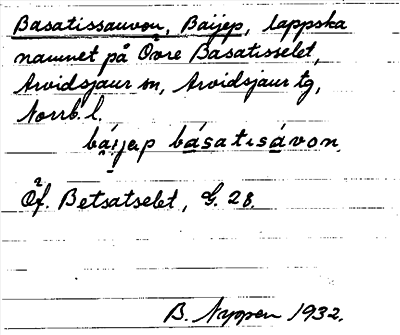 Basatissauvon, Baijep, lappska
namnet på Övre Basatisselet,
Arvidsjaur sn, Arvidsjaur tg,
Norrb. l.
báijep básatisávon.
Öf. Betsatselet, G. 28.
B. Nyppen 1932.